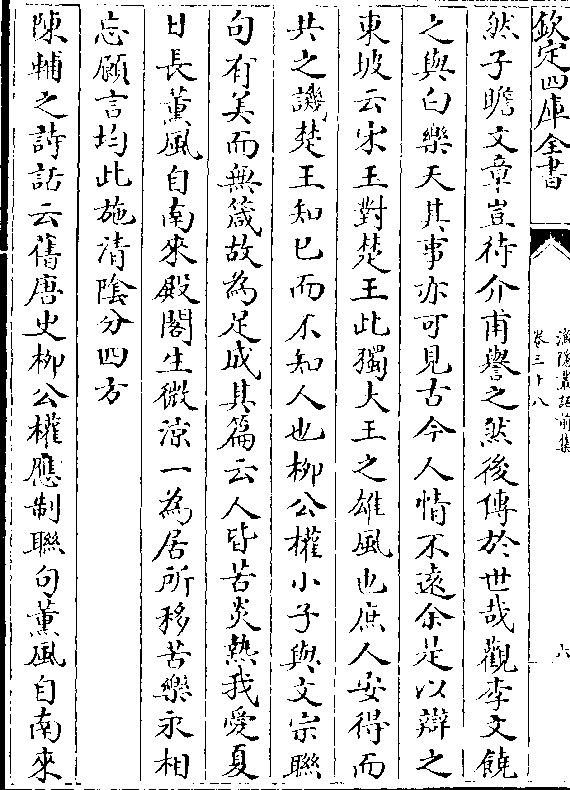 欽定四庫全書
漁隱叢話前集
卷三十八
六
然子瞻文章豈待介甫譽之然後傳於世哉觀李文饒
之與白樂天其事亦可見古今人情不遠余是以辯之
東坡云宋玉對楚王此獨大王之雄風也庶人安得而
共之譏楚王知已而不知人也柳公權小子與文宗聯
句有美而無箴故為足成其篇云人皆苦炎熱我愛夏
日長薰風自南來殿閣生微涼一為居所移苦樂永相
忘願言均此施清陰分四方
陳輔之詩話云舊唐史柳公權應制聯句薰風自南來